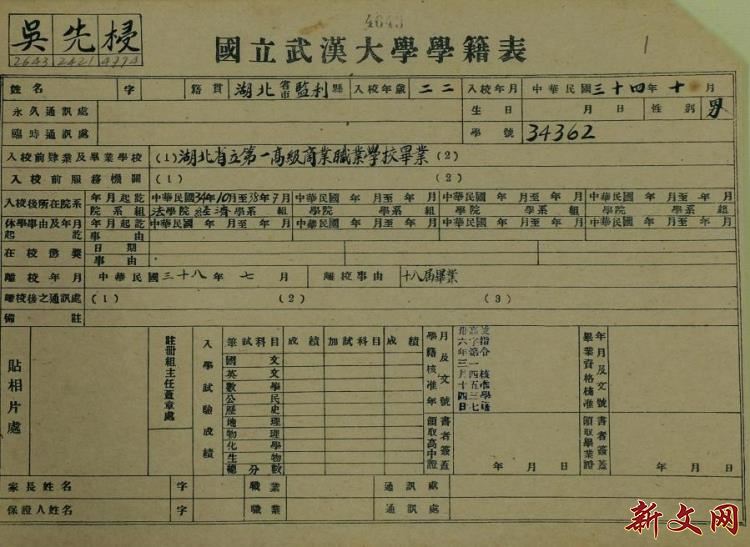 4643
吳先梫
2643 2421 4794
國立武漢大學學籍表
1
姓名 字 籍貫 湖北省市監利縣 入校年歲 二二 入校年月 中華民國三十四年十月
永久通訊處 生日 月 日 性別 男
臨時通訊處 學號 34362
入校前肄業及畢業學校 (1)湖北省立第一高級商業職業學校畢業 (2)
入校前服務機關 (1) (2)
入校後所在院系 年月起訖 中華民國34年10月至38年7月 中華民國 年 月至 年 月 中華民國 年 月至 年 月 中華民國 年 月至 年 月
院系組 法學院經濟學系 組 學院 學系 組 學院 學系 組 學院 學系 組
休學事由及年月起訖 年月起訖 中華民國 年 月至 年 月 中華民國 年 月至 年 月 中華民國 年 月至 年 月 中華民國 年 月至 年 月
事由
在校懲獎 日期
事由
離校年月 中華民國三十八年七月 離校事由 十八屆畢業
離校後之通訊處 (1) (2) (3)
備註
貼相片處
註冊組主任蓋章處
入學試驗成績
筆試科目 成績 加試科目 成績
國文
英文
數學
公民
歷史
地理
物理
化學
生物
總分數
學籍核准年月及文號
指令 核准學籍
高字第一四五三七
卅六年三月十四日
畢業資格核准年月及文號
領取高中證書者簽蓋
年 月 日
領取學業證書者簽蓋
年 月 日
家長姓名 字 職業 通訊處
保證人姓名 字 職業 通訊處
新文网